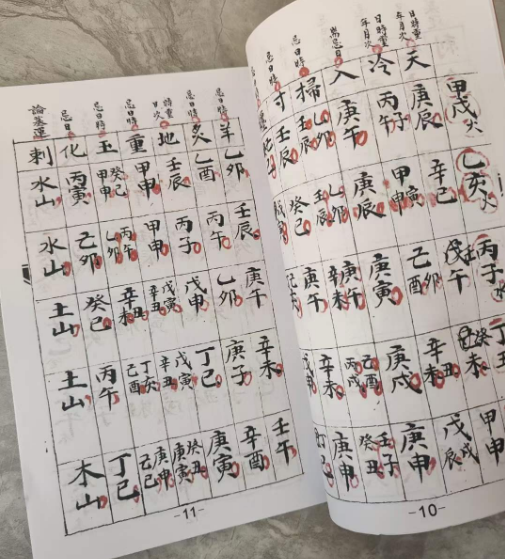 日時重
年月次
日時重
年月次
忌日時
天 冷 入 掃 寸
甲戌火 庚辰 丙子 庚午 壬辰
乙亥火 辛巳 甲寅 庚辰 乙卯 壬辰 癸巳
丙子 戊午 己酉 庚寅 庚午 辛未 庚午
辛未 庚戌 己酉 丙戌 辛丑 辛未
甲申 戊戌 戊辰 庚申 壬子 癸丑 庚申
-10-
忌日時
忌日時
時重
日次
忌日時
忌日時
忌日
論基運
羊 炙 地 重 玉 化 刺
乙卯 乙酉 壬辰 甲申 癸巳 甲申 丙寅 水山
壬辰 丙午 丙子 甲申 丙午 乙卯 己卯 水山
庚午 乙卯 戊申 戊寅 辛丑 辛未 癸巳 土山
辛未 庚子 丁巳 戊寅 辛丑 丁亥 己酉 丙午 土山
壬午 辛酉 庚寅 癸丑 庚寅 庚申 己巳 丁巳 木山
-11-